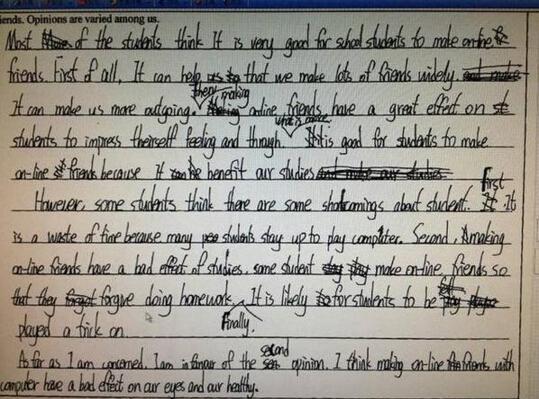 iends. Opinions are varied among us.
Most of the students think It is very good for school students to make on-line
friends. First of all, It can help that we make lots of friends widely.
It can make us more outgoing. then making on-line friends have a great effect on
students to impress theirself feeling and through. what is more It is good for students to make
on-line friends because It benefit our studies
However, some students think there are some shortcomings about student. First It
is a waste of time because many students stay up to play computer. Second, making
on-line friends have a bad effect of studies, some student make on-line friends so
that they forgive doing homework. Finally. It is likely for students to be
played a trick on.
As far as I am concerned, I am in favour of the second opinion. I think making on-line friends with
computer have a bad effect on our eyes and our healthy.